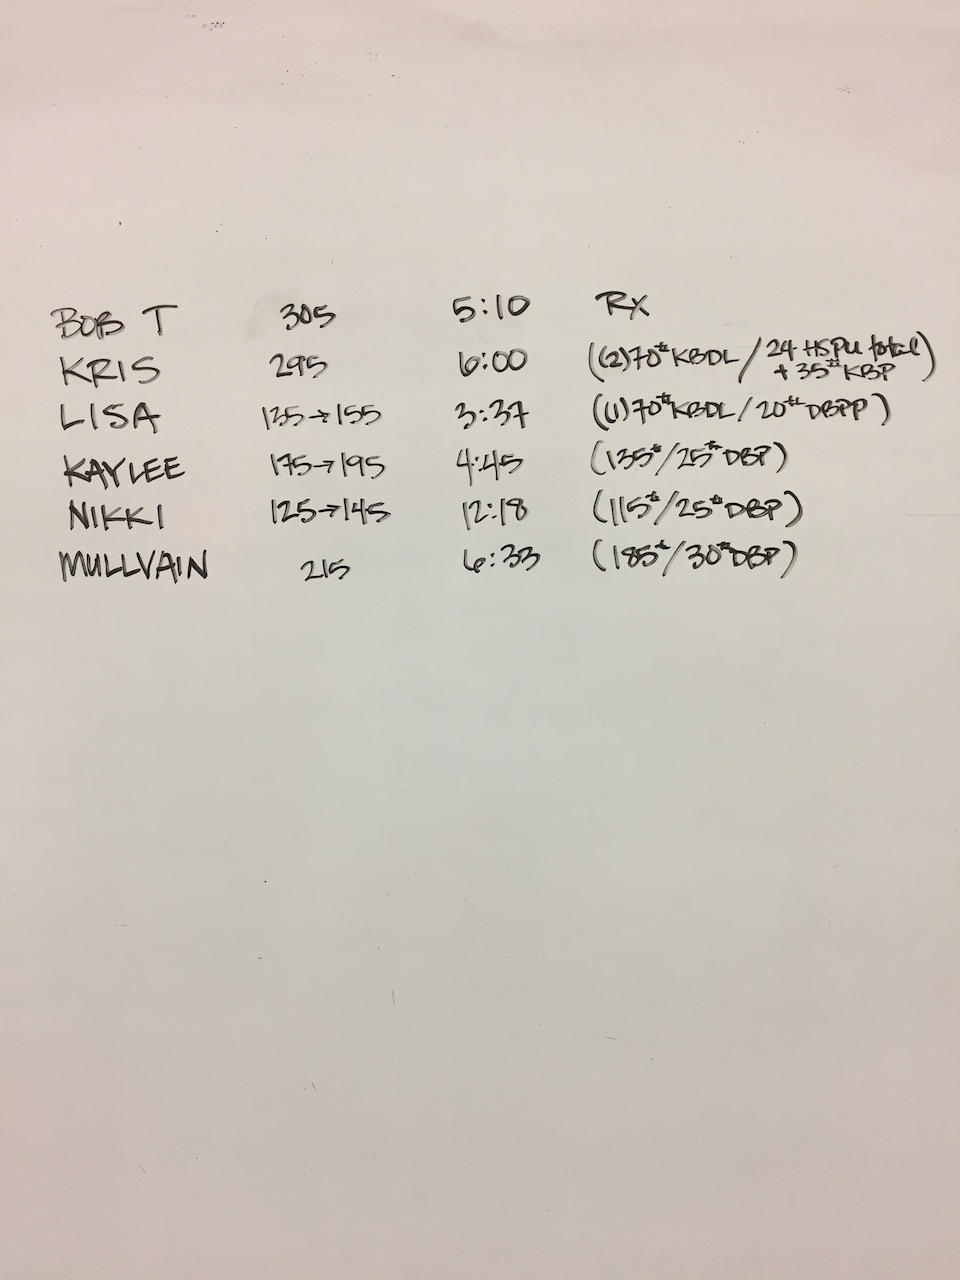 BOB T 305 5:10 Rx
KRIS 295 6:00 ((2)70# KBDL / 24 HSPU total + 35# KBP)
LISA 135→155 3:37 ((1)70# KBDL / 20# DBPP)
KAYLEE 175→195 4:45 (135#/25# DBP)
NIKKI 125→145 12:18 (115#/25# DBP)
MULLVAIN 215 6:33 (185#/30# DBP)